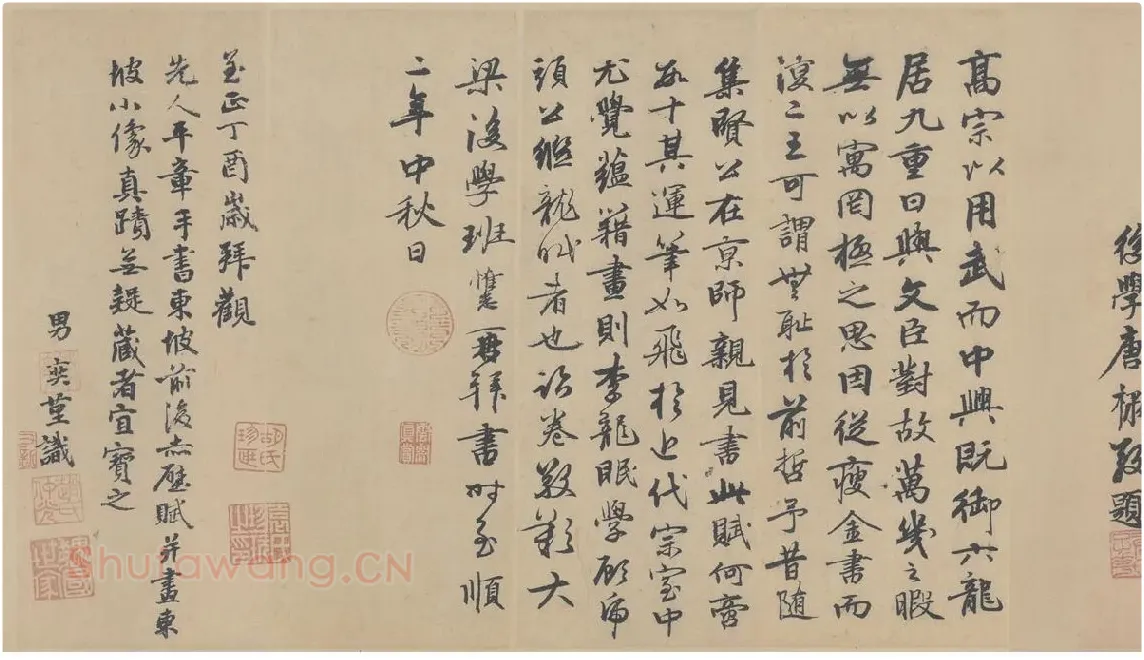 後學唐棣敬題
高宗以用武而中興既御六龍
居九重日與文臣對故萬幾之暇
無以寓罔極之思因從瘦金書而
復二王可謂無恥於前哲予昔隨
集賢公在京師親見書此賦何啻
數十其運筆如飛於近代宗室中
尤覺蘊藉畫則李龍眠學顧虎
頭公繼龍眠者也詒卷敬歎大
梁後學班惟志拜書時至順
二年中秋日
至正丁酉歲拜觀
先人平章手書東坡前後赤壁賦并畫東
坡小像真蹟無疑藏者宜寶之
男奕謹識
胡氏珍賞
Shufawang.CN